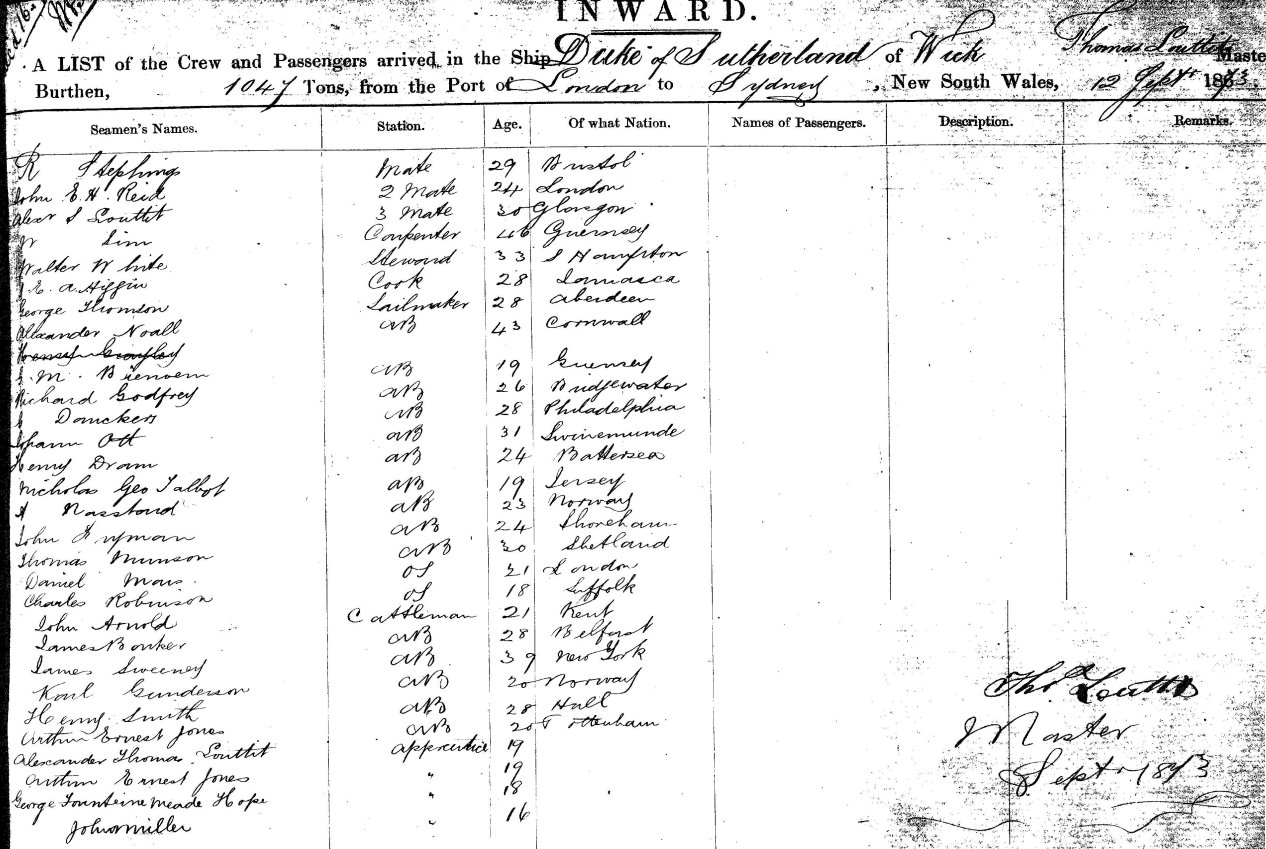 INWARD.
A LIST of the Crew and Passengers arrived in the Ship Duke of Sutherland of Wick Thomas Louttit Maste
Burthen, 1047 Tons, from the Port of London to Sydney, New South Wales, 12 Sept 1873.
Seamen's Names. Station. Age. Of what Nation. Names of Passengers. Description. Remarks.
R Stephings Mate 29 Bristol
John E. H. Reid 2 Mate 24 London
Alexr S Louttit 3 Mate 30 Glasgow
Sim Carpenter 46 Guernsey
Walter White Steward 33 S Hampton
E. A. Higgin Cook 28 Jamaica
George Thomson Sailmaker 28 Aberdeen
Alexander Noall AB 43 Cornwall
Henry
M. Bienvenu AB 19 Guernsey
Richard Godfrey AB 26 Bridgewater
Danckers AB 28 Philadelphia
Johann Ott AB 31 Swinemunde
Henry Dram AB 24 Battersea
Nicholas Geo Talbot AB 19 Jersey
Nasstard AB 23 Norway
John Fryman AB 24 Shoreham
Thomas Munson AB 30 Shetland
Daniel Mars OS 21 London
Charles Robinson OS 18 Suffolk
John Arnold Cattleman 21 Kent
James Bonker AB 28 Belfast
James Sweeney AB 39 New York
Karl Gunderson AB 20 Norway
Henry Smith AB 28 Hull
Arthur Ernest Jones AB 20 Tottenham
Alexander Thomas Louttit Apprentice 19
Arthur Ernest Jones " 19
George Founteine Meade Hope " 18
John Miller " 16
Thos Louttit
Master
Sept 1873